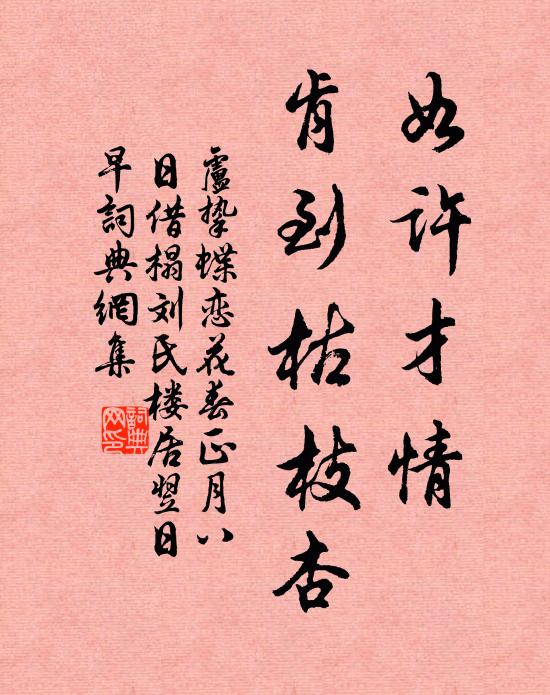 如许才情
肯到枯枝杏
盧挚蝶恋花春正月八
日借榻刘氏楼居翌日
早詞典網集
詞典
网印